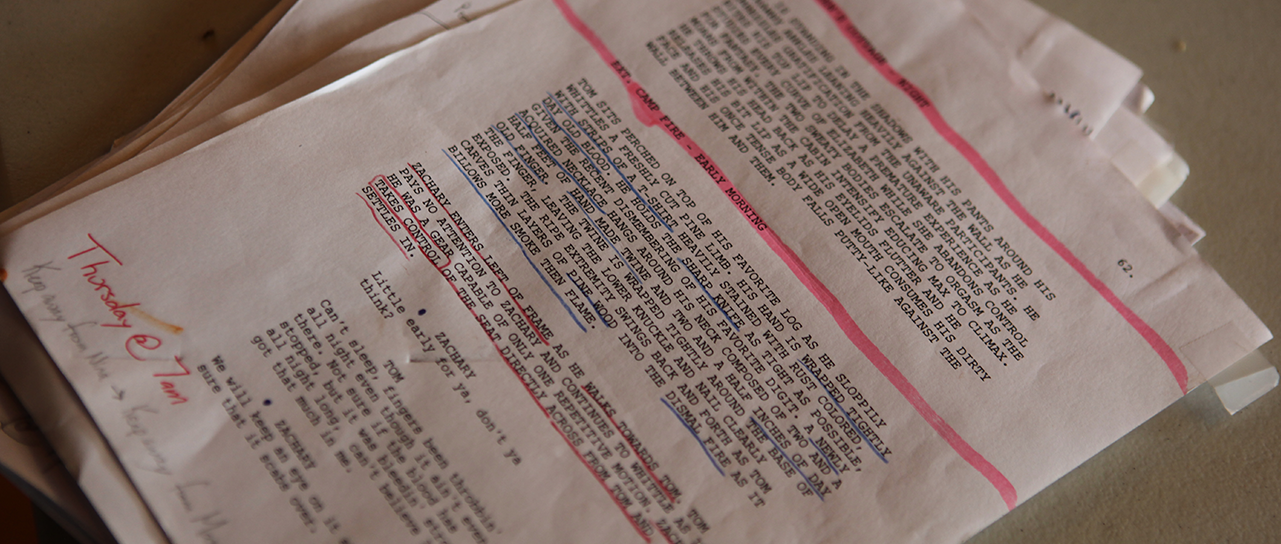 62.
NIGHT
IS STANDING IN THE SHADOWS WITH HIS PANTS AROUND HIS
LEANING HEAVILY AGAINST THE WALL AS HE
THE UNAWARE PARTICIPANTS.
TO DELAY A PREMATURE EXPERIENCE AS HE
OF ELIZABETH WHILE SHE ABANDONS CONTROL
THE TWO SWEATY BODIES ESCALATE TO ORGASM AS THE
WITHIN THE CABIN INTENSIFY EDUCING MAX TO CLIMAX.
HE THROWS HIS HEAD BACK AS HIS EYELIDS FLUTTER AND HE
RELEASES HIS BIT LIP AS A WIDE OPEN MOUTH CONSUMES HIS DIRTY
FACE. HIS INTENSE BODY FALLS PUTTY-LIKE AGAINST THE
WALL BETWEEN HIM AND THEM.
EXT. CAMP FIRE - EARLY MORNING
TOM SITS PERCHED ON TOP OF HIS FAVORITE LOG AS HE SLOPPILY
WHITTLES A FRESHLY CUT PINE LIMB. HIS HAND IS WRAPPED TIGHTLY
WITH STRIPS OF A SHIRT HEAVILY STAINED WITH RUST COLORED,
DAY OLD BLOOD. HE HOLDS THE SHARP KNIFE AS TIGHT AS POSSIBLE,
GIVEN THE RECENT DISMEMBERING OF HIS FAVORITE DIGIT. A NEWLY
ACQUIRED NECKLACE HANGS AROUND HIS NECK COMPOSED OF TWO AND A
HALF FEET OF HAND MADE TWINE AND TWO AND A HALF INCHES OF DAY
OLD FINGER. THE TWINE IS WRAPPED TIGHTLY AROUND THE BASE OF
THE FINGER, LEAVING THE LOWER KNUCKLE AND NAIL CLEARLY
EXPOSED. THE RIPE EXTREMITY SWINGS BACK AND FORTH AS TOM
CARVES THIN LAYERS OF PINE WOOD INTO THE DISMAL FIRE AS IT
BILLOWS MORE SMOKE THEN FLAME.
ZACHARY ENTERS LEFT OF FRAME AS HE WALKS TOWARDS TOM. TOM
PAYS NO ATTENTION TO ZACHARY AND CONTINUES TO WHITTLE AS IF
HE WAS A GEAR CAPABLE OF ONLY ONE REPETITIVE MOTION.
TAKES CONTROL OF THE SEAT DIRECTLY ACROSS FROM TOM AND
SETTLES IN.
ZACHARY
Little early for ya, don't ya
think?
TOM
Can't sleep, fingers been throbbin'
all night even though it ain't even
there. Not sure if the blood has
stopped, but it was bleedin'
all night long. I can't believe
got that much in me.
ZACHARY
We will keep an eye on it
sure that it scabs over.
Thursday @ 7am
Keep away from